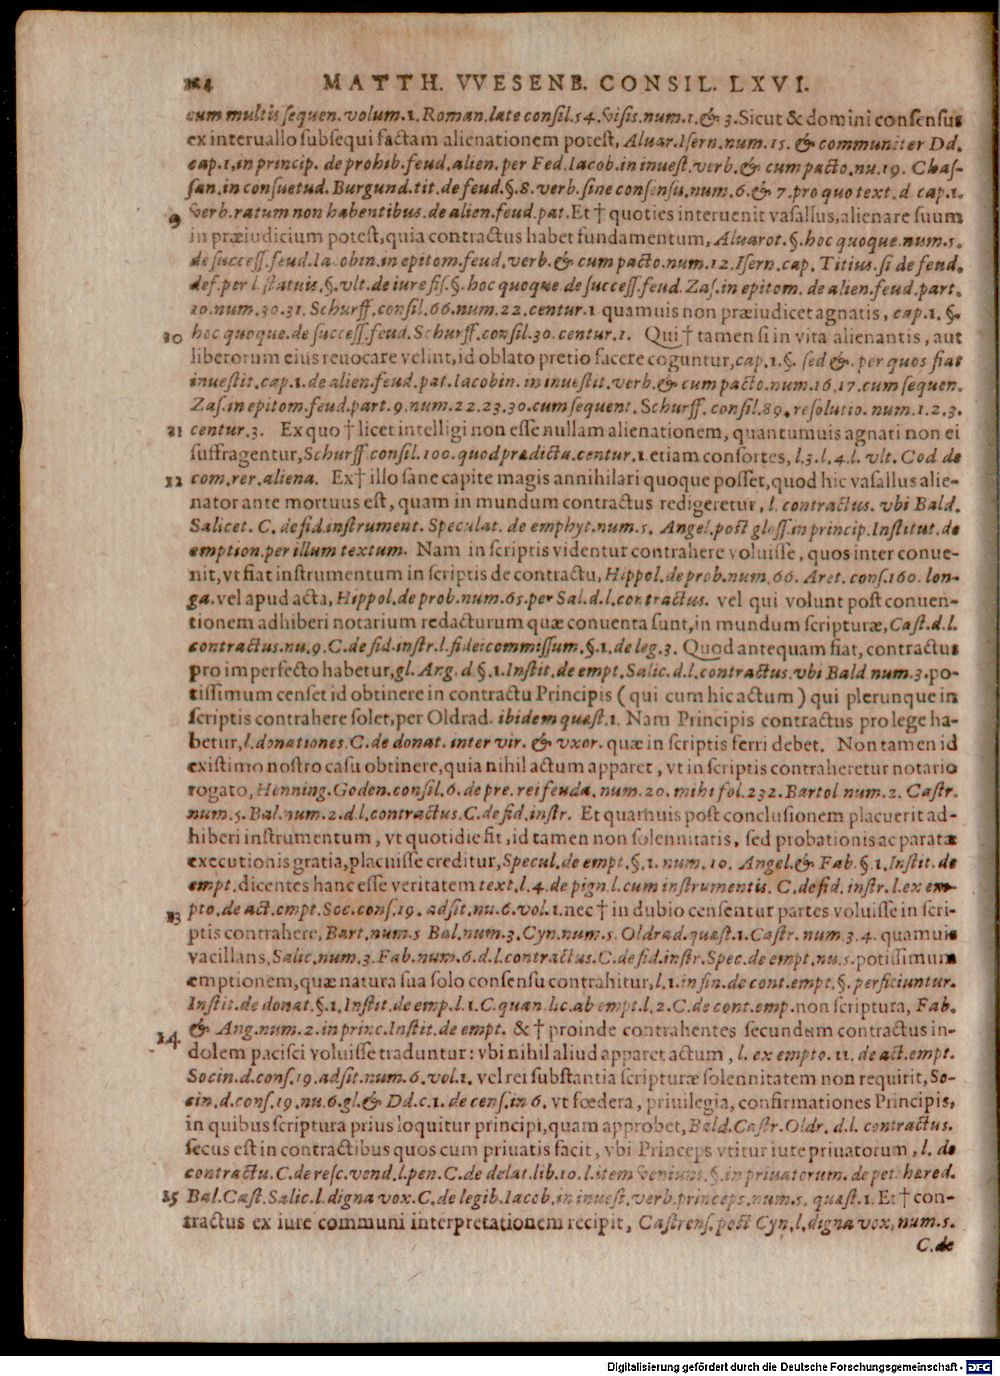 MATTH. VVESENB. CONSIL. LXVI.
cum multis sequen. volum. 1. Roman. late consil. 54. visis. num. 1. & 3. Sicut & domini consensus
ex interuallo subsequi factam alienationem potest, Aluar. Isern. num. 15. & communiter Dd.
cap. 1, in princip. de prohib. feud. alien. per Fed. Iacob. in inuest. verb. & cum pacto. nu. 19. Chas-
san. in consuetud. Burgund. tit. de feud. §. 8. verb. sine consensu, num. 6. & 7. pro quo text. d. cap. 1.
9 verb. ratum non habentibus. de alien. feud. pat. Et † quoties interuenit vasallus, alienare suum
in præiudicium potest, quia contractus habet fundamentum, Aluarot. §. hoc quoque. num. 5.
de success. feud. Iacobin. in epitom. feud. verb. & cum pacto. num. 12. Isern. cap. Titius. si de feud.
def. per l. statuis, §. vlt. de iure fis. §. hoc quoque de success. feud. Zas. in epitom. de alien. feud. part.
10. num. 30. 31. Schurff. consil. 66. num. 22. centur. 1. quamuis non præiudicet agnatis, cap. 1. §.
10 hoc quoque. de success. feud. Schurff. consil. 30. centur. 1. Qui † tamen si in vita alienantis, aut
liberorum eius reuocare velint, id oblato pretio facere coguntur, cap. 1. §. sed &. per quos fiat
inuestit. cap. 1. de alien. feud. pat. Iacobin. in inuestit. verb. & cum pacto. num. 16. 17. cum sequen.
Zas. in epitom. feud. part. 9. num. 22. 23. 30. cum sequent. Schurff. consil. 89. resolutio. num. 1. 2. 3.
11 centur. 3. Ex quo † licet intelligi non esse nullam alienationem, quantumuis agnati non ei
suffragentur, Schurff. consil. 100. quod prædicta. centur. 1. etiam consortes, l. 3. l. 4. l. vlt. Cod de
12 com. rer. aliena. Ex † illo sane capite magis annihilari quoque posset, quod hic vasallus alie-
nator ante mortuus est, quam in mundum contractus redigeretur, l. contractus. vbi Bald.
Salicet. C. de fid. instrument. Speculat. de emphyt. num. 5. Angel. post gloss. in princip. Institut. de
emption. per illum textum. Nam in scriptis videntur contrahere voluisse, quos inter conue-
nit, vt fiat instrumentum in scriptis de contractu, Hippol. de prob. num. 66. Aret. cons. 160. lon-
ga. vel apud acta, Hippol. de prob. num. 65. per Sal. d. l. contractus. vel qui volunt post conuen-
tionem adhiberi notarium redacturum quæ conuenta sunt, in mundum scripturæ, Cast. d. l.
contractus. nu. 9. C. de fid. instr. l. fideicommissum. §. 1. de leg. 3. Quod antequam fiat, contractus
pro imperfecto habetur, gl. Arg. d. §. 1. Instit. de empt. Salic. d. l. contractus. vbi Bald num. 3. po-
tissimum censet id obtinere in contractu Principis ( qui cum hic actum ) qui plerunque in
scriptis contrahere solet, per Oldrad. ibidem quæst. 1. Nam Principis contractus pro lege ha-
betur, l. donationes. C. de donat. inter vir. & vxor. quæ in scriptis ferri debet. Non tamen id
existimo nostro casu obtinere, quia nihil actum apparet, vt in scriptis contraheretur notario
rogato, Henning. Goden. consil. 6. de pre. rei feuda. num. 20. mihi fol. 232. Bartol num. 2. Castr.
num. 5. Bal. num. 2. d. l. contractus. C. de fid. instr. Et quamuis post conclusionem placuerit ad-
hiberi instrumentum, vt quotidie fit, id tamen non solennitatis, sed probationis ac paratæ
executionis gratia, placuisse creditur, Specul. de empt. §. 1. num. 10. Angel. & Fab. §. 1. Instit. de
empt. dicentes hanc esse veritatem text. l. 4. de pign. l. cum instrumentis. C. de fid. instr. l. ex em-
13 pto. de act. empt. Soc. cons. 19. adsit. nu. 6. vol. 1. nec † in dubio censentur partes voluisse in scri-
ptis contrahere, Bart. num. 5 Bal. num. 3. Cyn. num. 5. Oldrad. quæst. 1. Castr. num. 3. 4. quamuis
vacillans, Salic. num. 3. Fab. num. 6. d. l. contractus. C. de fid. instr. Spec. de empt. nu. 5. potissimum
emptionem, quæ natura sua solo consensu contrahitur, l. 1. in fin. de cont. empt. §. perficiuntur.
Instit. de donat. §. 1. Instit. de emp. l. 1. C. quan. lic. ab empt. l. 2. C. de cont. emp. non scriptura, Fab.
14. & Ang. num. 2. in princ. Instit. de empt. & † proinde contrahentes secundum contractus in-
dolem pacisci voluisse traduntur: vbi nihil aliud apparet actum, l. ex empto. 11. de act. empt.
Socin. d. cons. 19. adsit. num. 6. vol. 1. vel rei substantia scripturæ solennitatem non requirit, So-
cin. d. cons. 19. nu. 6. gl. & Dd. c. 1. de cens. in 6. vt fœdera, priuilegia, confirmationes Principis,
in quibus scriptura prius loquitur principi, quam approbet, Bald. Castr. Oldr. d. l. contractus.
secus est in contractibus quos cum priuatis facit, vbi Princeps vtitur iure priuatorum, l. de
contractu. C. de resc. vend. l. pen. C. de delat. lib. 10. l. item veniunt. §. in priuatorum. de pet. hered.
15 Bal. Cast. Salic. l. digna vox. C. de legib. Iacob. in inuest. verb. princeps. num. 5. quæst. 1. Et † con-
tractus ex iure communi interpretationem recipit, Castrens. post Cyn. l. digna vox. num. 5.
C. de
Digitalisierung gefördert durch die Deutsche Forschungsgemeinschaft - DFG